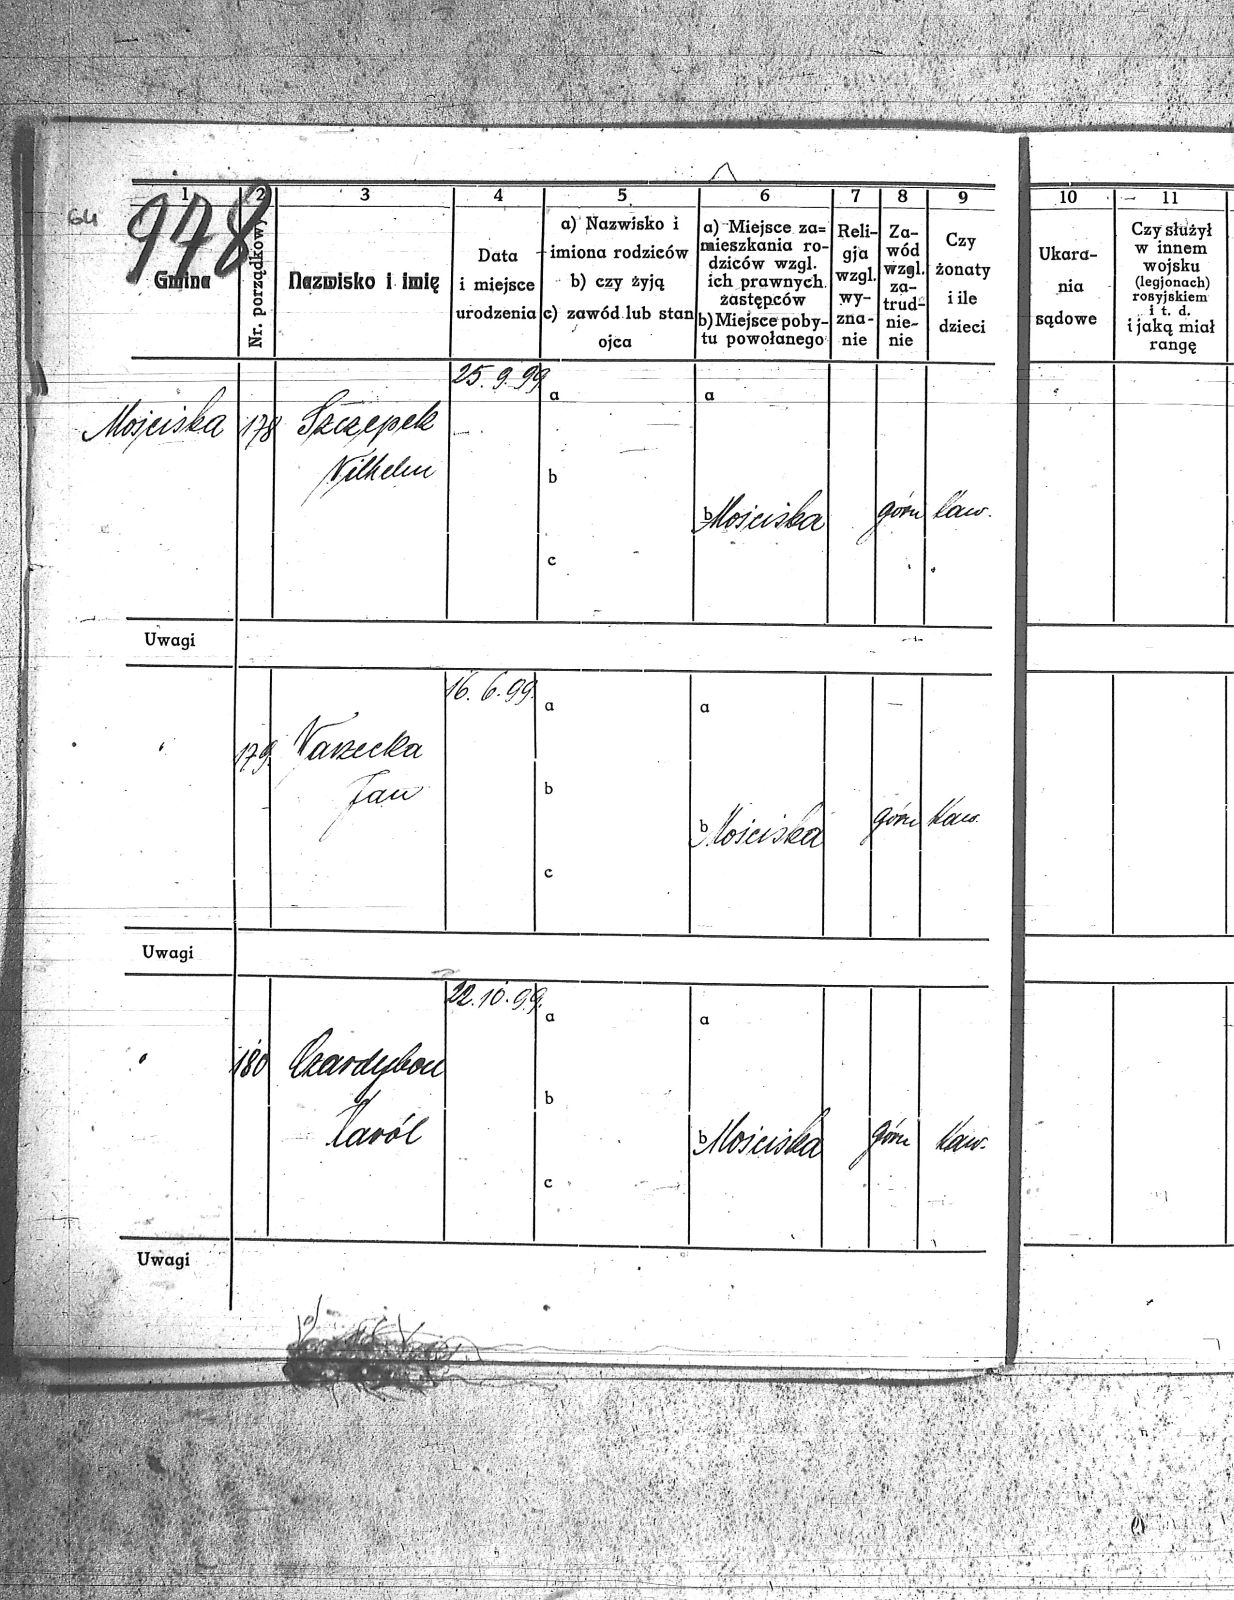 64
978
1 2 3 4 5 6 7 8 9 10 11
Gmina
Nr. porządkowy
Nazwisko i imię
Data
i miejsce
urodzenia
a) Nazwisko i
imiona rodziców
b) czy żyją
c) zawód lub stan
ojca
a) Miejsce za=
mieszkania ro-
dziców wzgl.
ich prawnych
zastępców
b) Miejsce poby-
tu powołanego
Reli-
gja
wzgl.
wy-
zna-
nie
Za-
wód
wzgl.
za-
trud-
nie-
nie
Czy
żonaty
i ile
dzieci
Ukara-
nia
sądowe
Czy służył
w innem
wojsku
(legjonach)
rosyjskiem
i t. d.
i jaką miał
rangę
25. 9. 99
a a
Mojciska 178 Szczepek
Wilhelm
b
b Mościska górn kaw.
c
Uwagi
16. 6. 99.
a a
" 179. Warzecka
Jan
b
b Mościska górn kaw.
c
Uwagi
22. 10. 99.
a a
" 180 Czardybon
Karól
b
b Mościska górn kaw.
c
Uwagi